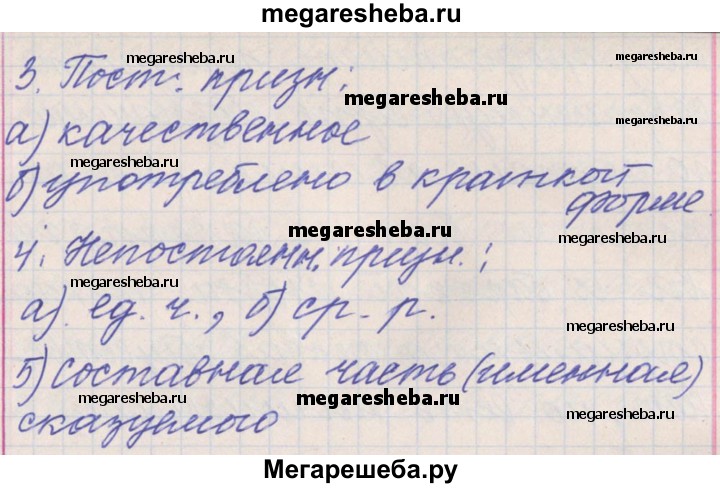 megaresheba.ru
megaresheba.ru
megaresheba.ru
3. Пост. призн:
megaresheba.ru
megaresheba.ru
а) качественное
megaresheba.ru
megaresheba.ru
б) употреблено в краткой
форме
megaresheba.ru
megaresheba.ru
4. Непостоянн. призн.:
megaresheba.ru
а) ед. ч., б) ср. р.
megaresheba.ru
5) составная часть (именная)
megaresheba.ru
megaresheba.ru
megaresheba.ru
сказуемого
Мегарешеба.ру